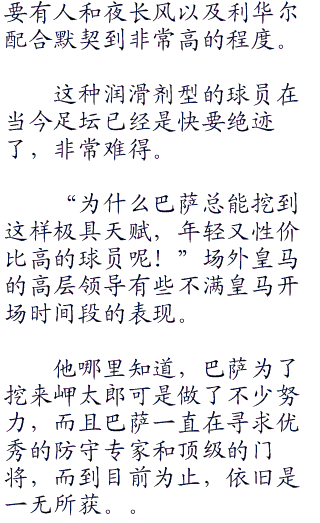 要有人和夜长风以及利华尔
配合默契到非常高的程度。
这种润滑剂型的球员在
当今足坛已经是快要绝迹
了，非常难得。
“为什么巴萨总能挖到
这样极具天赋，年轻又性价
比高的球员呢！”场外皇马
的高层领导有些不满皇马开
场时间段的表现。
他哪里知道，巴萨为了
挖来岬太郎可是做了不少努
力，而且巴萨一直在寻求优
秀的防守专家和顶级的门
将，而到目前为止，依旧是
一无所获。。